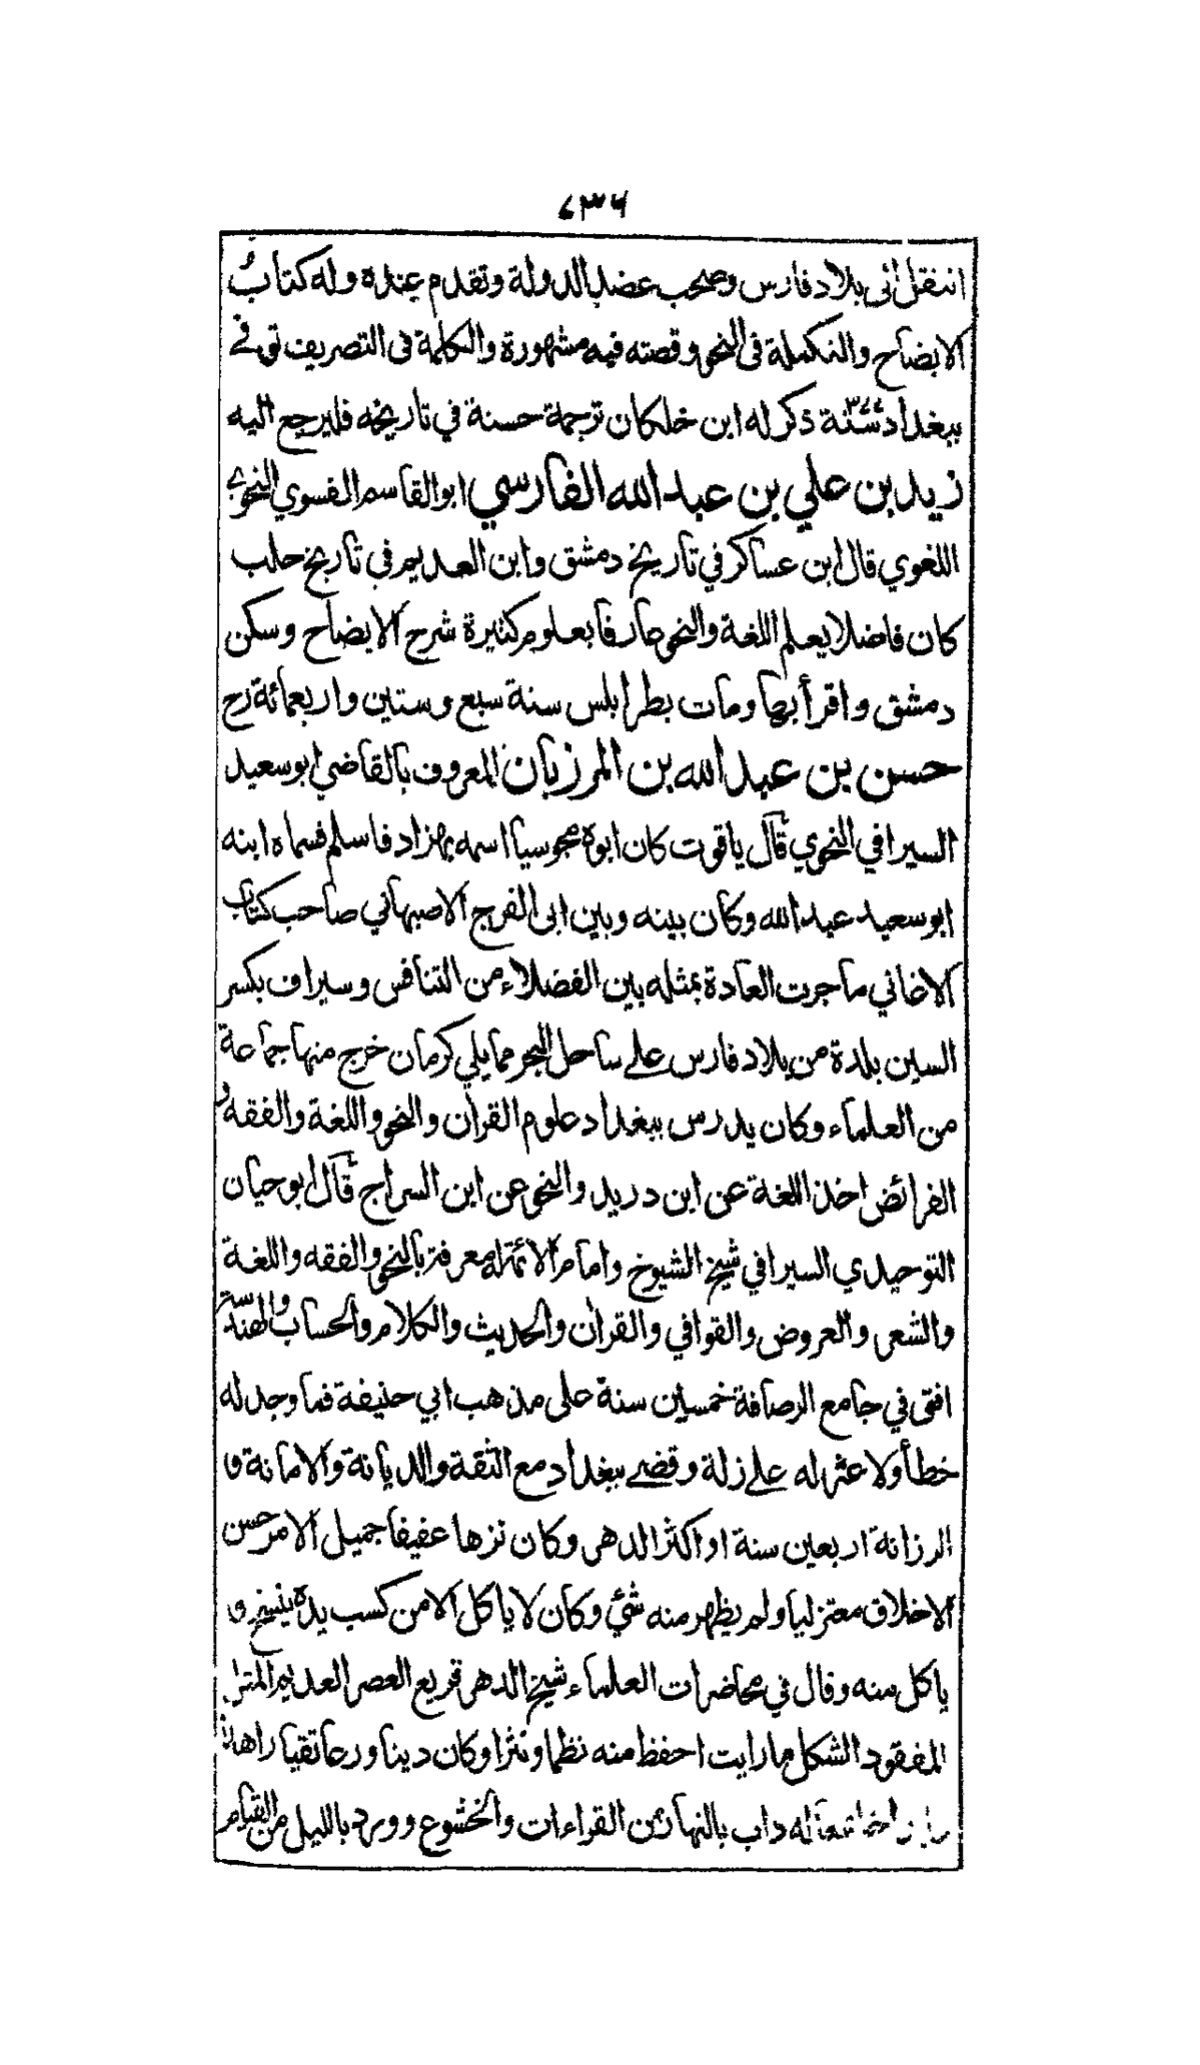 ٧٣٦
انتقل الى بلاد فارس وصحب عضد الدولة وتقدم عنده وله كتاب
الايضاح والتكملة فى النحو وقصته فيه مشهورة والكلمة فى التصريف توفے
ببغداد سنة ٣٧٧ ذكر له ابن خلكان ترجمة حسنة في تاريخه فليرجع اليه
زيد بن علي بن عبد الله الفارسي ابو القاسم الفسوي النحوي
اللغوي قال ابن عساكر في تاريخ دمشق وابن العديم في تاريخ حلب
كان فاضلا يعلم اللغة والنحو عارفا بعلوم كثيرة شرح الايضاح وسكن
دمشق واقرأ بها ومات بطرابلس سنة سبع وستين واربعمائة رح
حسن بن عبد الله بن المرزبان المعروف بالقاضي ابو سعيد
السيرافي النحوي قال ياقوت كان ابوه مجوسيا اسمه بهزاد فاسلم فسماه ابنه
ابو سعيد عبد الله وكان بينه وبين ابى الفرج الاصبهاني صاحب كتاب
الاغاني ما جرت العادة بمثله بين الفضلاء من التنافس وسيراف بكسر
السين بلدة من بلاد فارس علے ساحل البحر مما يلي كرمان خرج منها جماعة
من العلماء وكان يدرس ببغداد علوم القرآن والنحو واللغة والفقه و
الفرائض اخذ اللغة عن ابن دريد والنحو عن ابن السراج قال ابو حيان
التوحيدي السيرافي شيخ الشيوخ وامام الائمة له معرفة بالنحو والفقه واللغة
والشعر والعروض والقوافي والقرآن والحديث والكلام والحساب والهندسة
افتى في جامع الرصافة خمسين سنة على مذهب ابي حنيفة فما وجد له
خطأ ولا عثر له علے زلة وقضے ببغداد مع الثقة والديانة والامانة و
الرزانة اربعين سنة او اكثر الدهر وكان نزها عفيفا جميل الامر حسن
الاخلاق معتزليا ولم يظهر منه شئ وكان لا ياكل الا من كسب يده ينسخ و
ياكل منه وقال في محاضرات العلماء شيخ الدهر قريع العصر العديم المثل
المفقود الشكل ما رايت احفظ منه نظما ونثرا وكان دينا ورعا تقيا زاهدا
خاشعا له داب بالنهار من القراءات والخشوع وورد بالليل من القيام